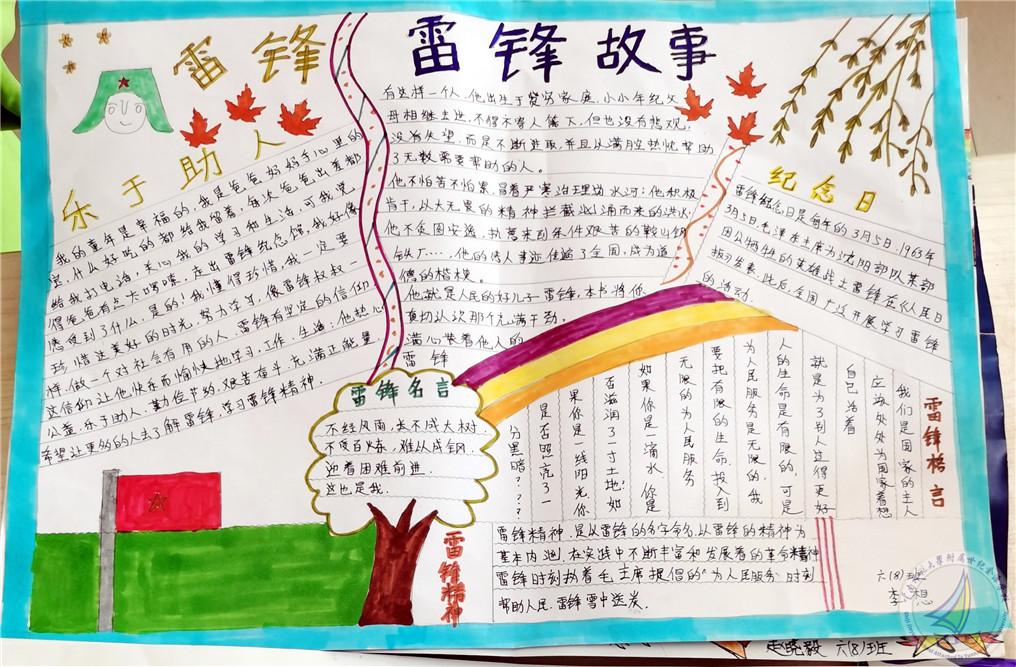 雷锋
雷锋故事
有这样一个人,他出生于贫穷家庭,小小年纪父
母相继去逝,不得不寄人篱下,但也没有悲观,
没有失望,而是不断进取,并且以满腔热忱帮助
了无数需要帮助的人。
他不怕苦不怕累,冒着严寒治理 河;他积极
肯干,以大无畏的精神拦截汹涌而来的洪水
他不贪图安逸,执意来到条件艰苦的鞍山钢
铁厂……,他的伟人事迹传遍了全国,成为道
德的楷模。
他就是人民的好儿子雷锋,本书将你
真切认识那个充满干劲,
满心装着他人的
雷锋
乐于助人
我的童年是幸福的,我是爸爸妈妈手心里的
宝,什么好吃的都给我留着,每次爸爸出差都
给我打电话,关心我的学习和生活,可我觉
得爸爸有点大啰嗦,走出雷锋纪念馆,我好像
感受到了什么,是的!我懂得珍惜,我一定要
珍惜这美好的时光,努力学习,像雷锋叔叔一
样,做一个对社会有用的人,雷锋有坚定的信仰
这信仰让他快乐而愉快地学习,工作,生活;他热心
公益,乐于助人,勤俭节约,艰苦奋斗,充满正能量
希望让更多的人去了解雷锋,学习雷锋精神.
纪念日
雷锋纪念日是每年的3月5日,1963年
3月5日,毛泽东主席为沈阳部队某部
因公牺牲的英雄战士雷锋在《人民日
报》发表,此后,全国广泛开展学习雷锋
的活动.
雷锋名言
不经风雨,长不成大树.
不受百炼,难以成钢.
迎着困难前进.
这也是我.
雷锋格言
我们是国家的主人
应该处处为国家着想
自己活着
就是为了别人过得更好
人的生命是有限的,可是
为人民服务是无限的,我
要把有限的生命,投入到
无限的为人民服务
如果你是一滴水,你是
否滋润了一寸土地?如
果你是一线阳光,你
是否照亮了一
分黑暗???
雷锋精神
雷锋精神,是以雷锋的名字命名,以雷锋的精神为
基本内涵,在实践中不断丰富和发展着的革命精神
雷锋时刻执着毛主席提倡的"为人民服务"时刻
帮助人民.雷锋雪中送炭.
六(8)班
李想
赵晓毅 六(8)班